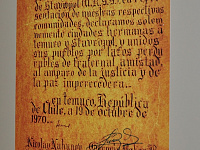 de Stavropol (U.R.S.S.) en repre-
sentación de nuestras respectivas
comunidades, declaramos solem-
nemente ciudades hermanas a
Temuco y Stavropol, y unidos
sus pueblos por lazos perdu-
rables de fraternal amistad,
al amparo de la justicia y de la
paz imperecedera.
en Temuco, República
de Chile, a 19 de octubre de
1970.
Nicolay